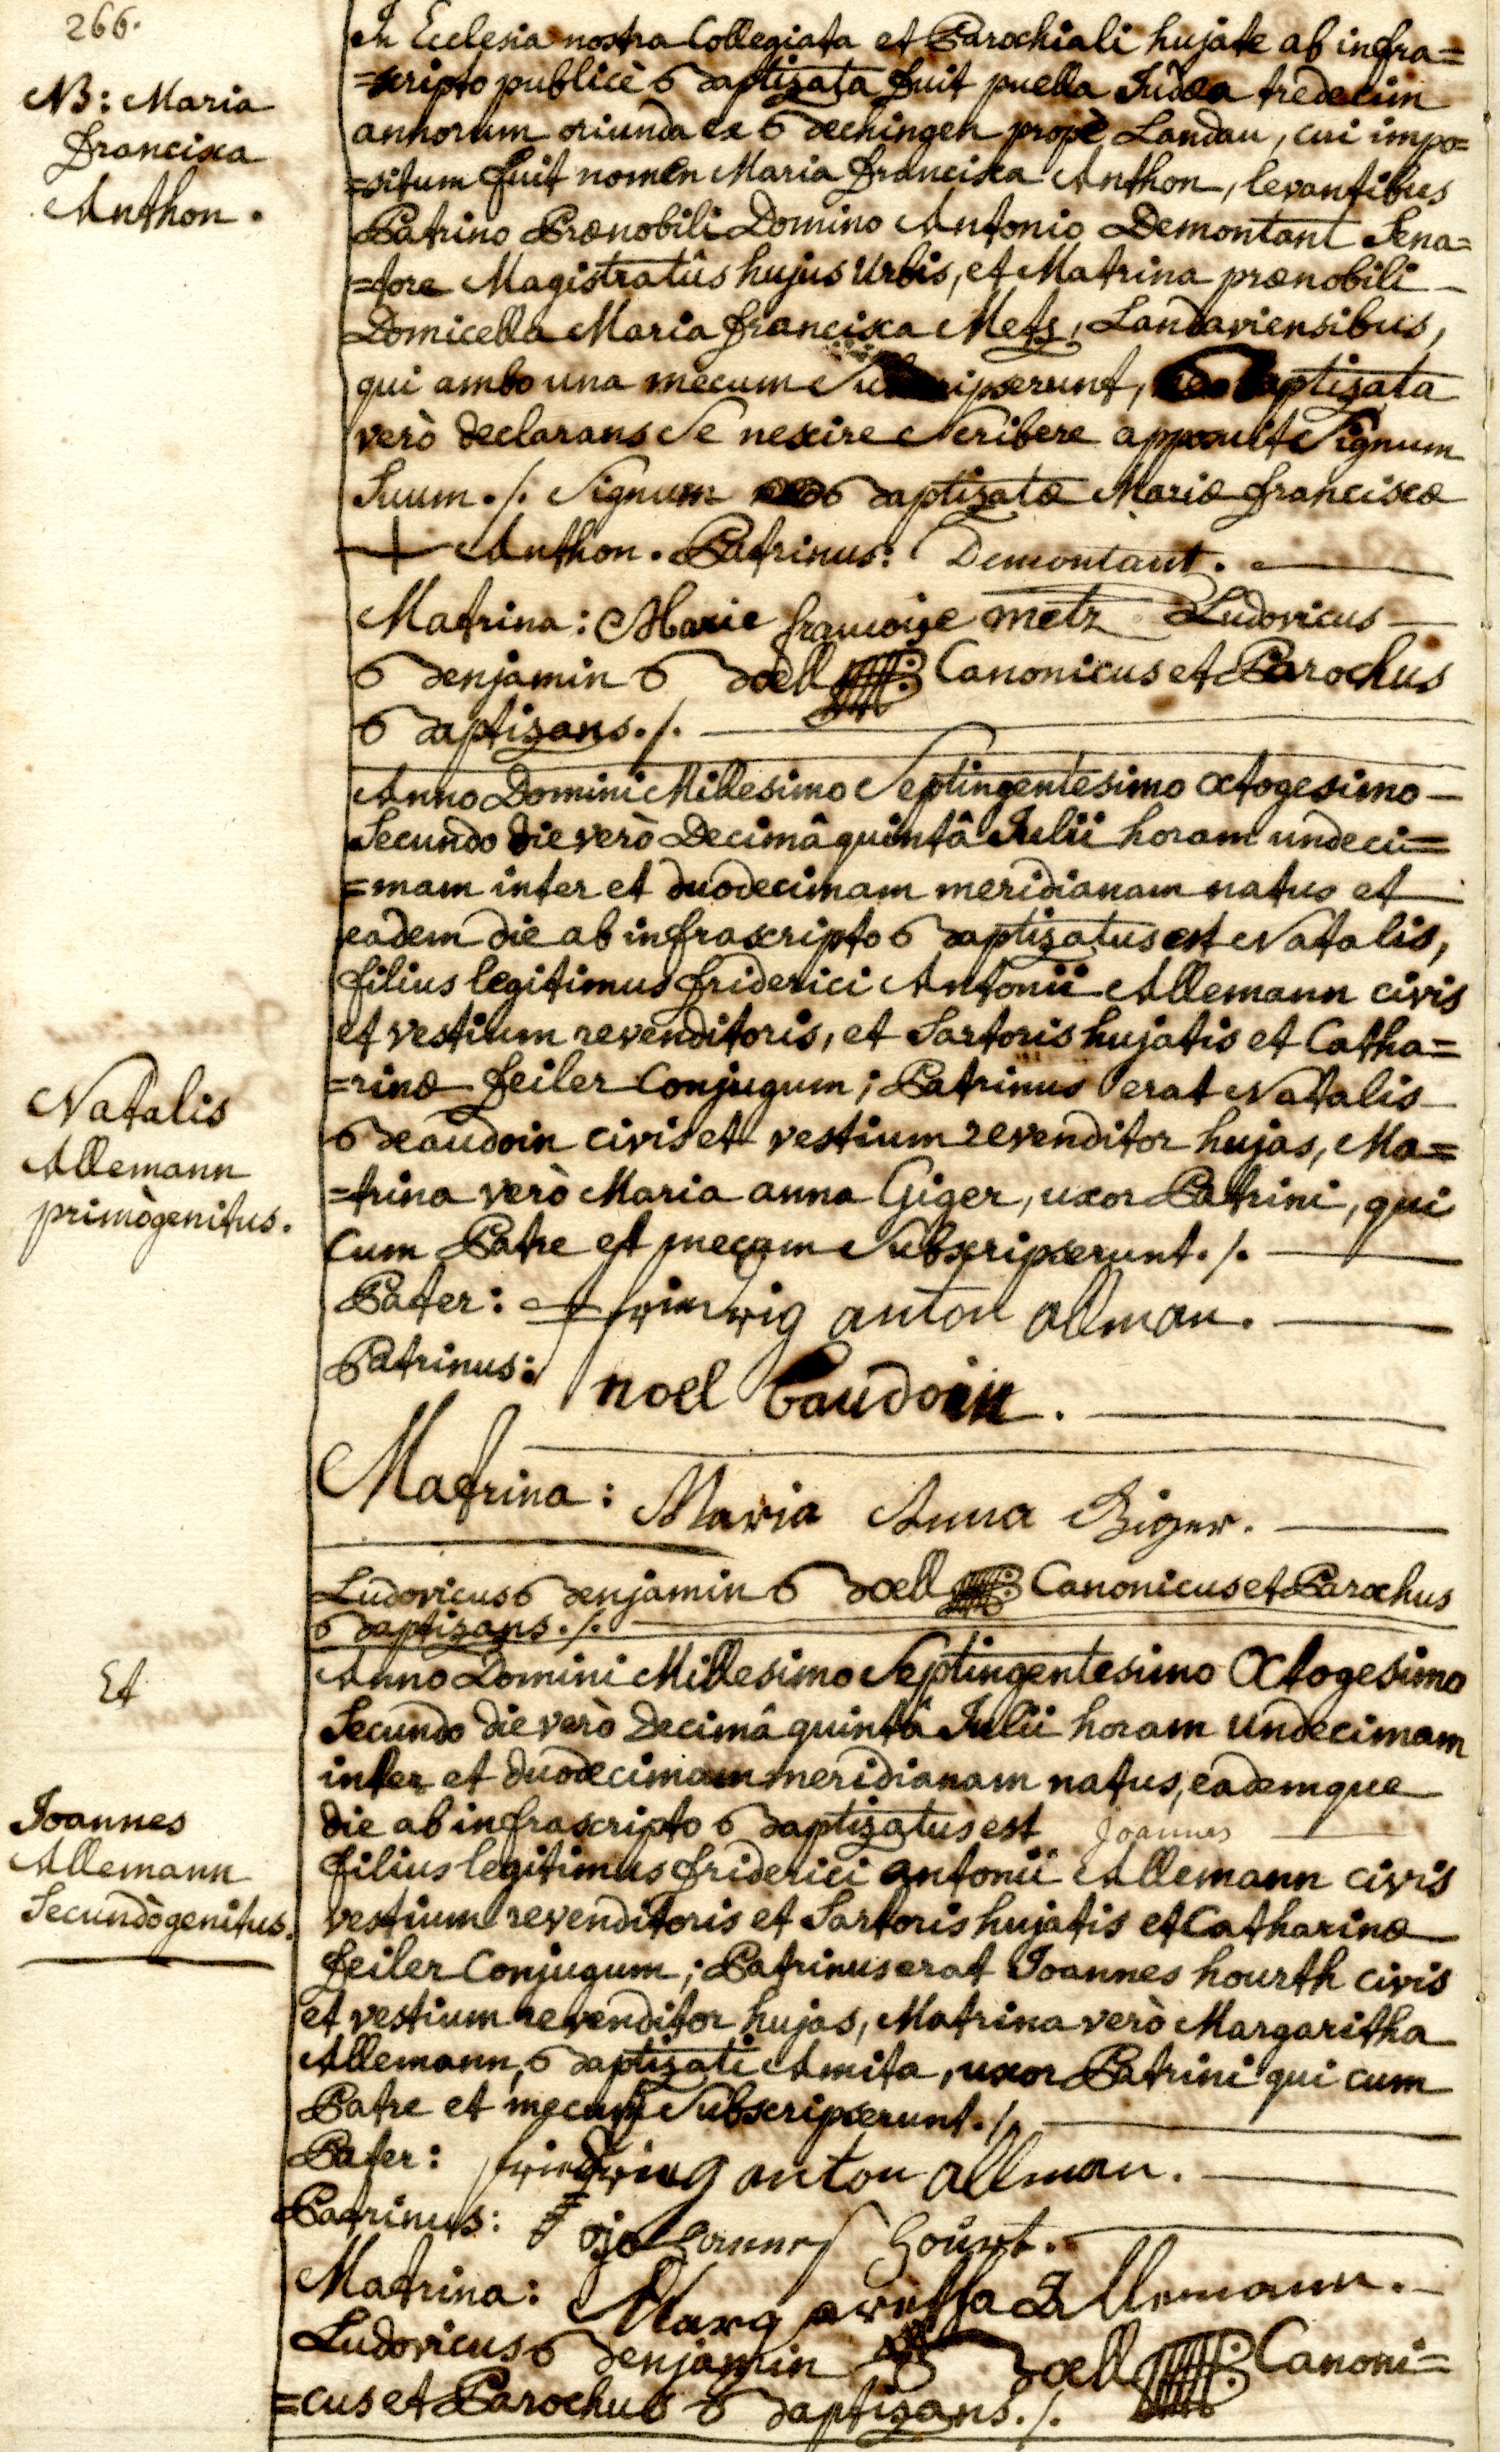 266.
NB: Maria
Francisca
Anthon.
In Ecclesia nostra Collegiata et Parochiali hujate ab infra=
=scripto publicè Baptizata fuit puella Judæa tredecim
annorum oriunda ex Bechingen propè Landau, cui impo=
=situm fuit nomen Maria Francisca Anthon, levantibus
Patrino Prænobili Domino Antonio Demontant Sena=
=tore Magistratûs hujus Urbis, et Matrina prænobili
Domicella Maria Francisca Metz, Landaviensibus,
qui ambo una mecum Subscripserunt, Baptizata
verò declarans Se nescire Scribere apposuit Signum
Suum./. Signum Baptizatæ Mariæ Franciscæ
+ Anthon. Patrinus: Demontant.
Matrina: Marie françoise metz Ludovicus
Benjamin Boell Canonicus et Parochus
Baptizans./.
Anno Domini Millesimo Septingentesimo Octogesimo
Secundo die verò Decimâ quintâ Julii horam undeci=
=mam inter et duodecimam meridianam natus et
eadem die ab infrascripto Baptizatus est Natalis,
filius legitimus Friderici Antonii Allemann civis
et vestium revenditoris, et Sartoris hujatis et Catha=
=rinæ Feiler Conjugum; Patrinus erat Natalis
Beaudoin civis et vestium revenditor hujas, Ma=
=trina verò Maria anna Giger, uxor Patrini, qui
Cum Patre et mecum Subscripserunt./.
Natalis
Allemann
primògenitus.
Pater: anton allman.
Patrinus: noel baudoin.
Matrina: Maria Anna Giger.
Ludovicus Benjamin Boell Canonicus et Parochus
Baptizans./.
Et
Anno Domini Millesimo Septingentesimo Octogesimo
Secundo die verò Decimâ quintâ Julii horam undecimam
inter et duodecimam meridianam natus, eademque
die ab infrascripto Baptizatus est Joannes
filius legitimus Friderici antonii Allemann civis
vestium revenditoris et Sartoris hujatis et Catharinæ
Feiler Conjugum; Patrinus erat Joannes hourth civis
et vestium revenditor hujas, Matrina verò Margaritha
Allemann, Baptizati Amita, uxor Patrini qui cum
Patre et mecum Subscripserunt./.
Joannes
Allemann
Secundògenitus.
Pater: anton allman.
Patrinus: Johannes hourt.
Matrina: Margaretha Allemann.
Ludovicus Benjamin Boell Canoni=
=cus et Parochus Baptizans./.